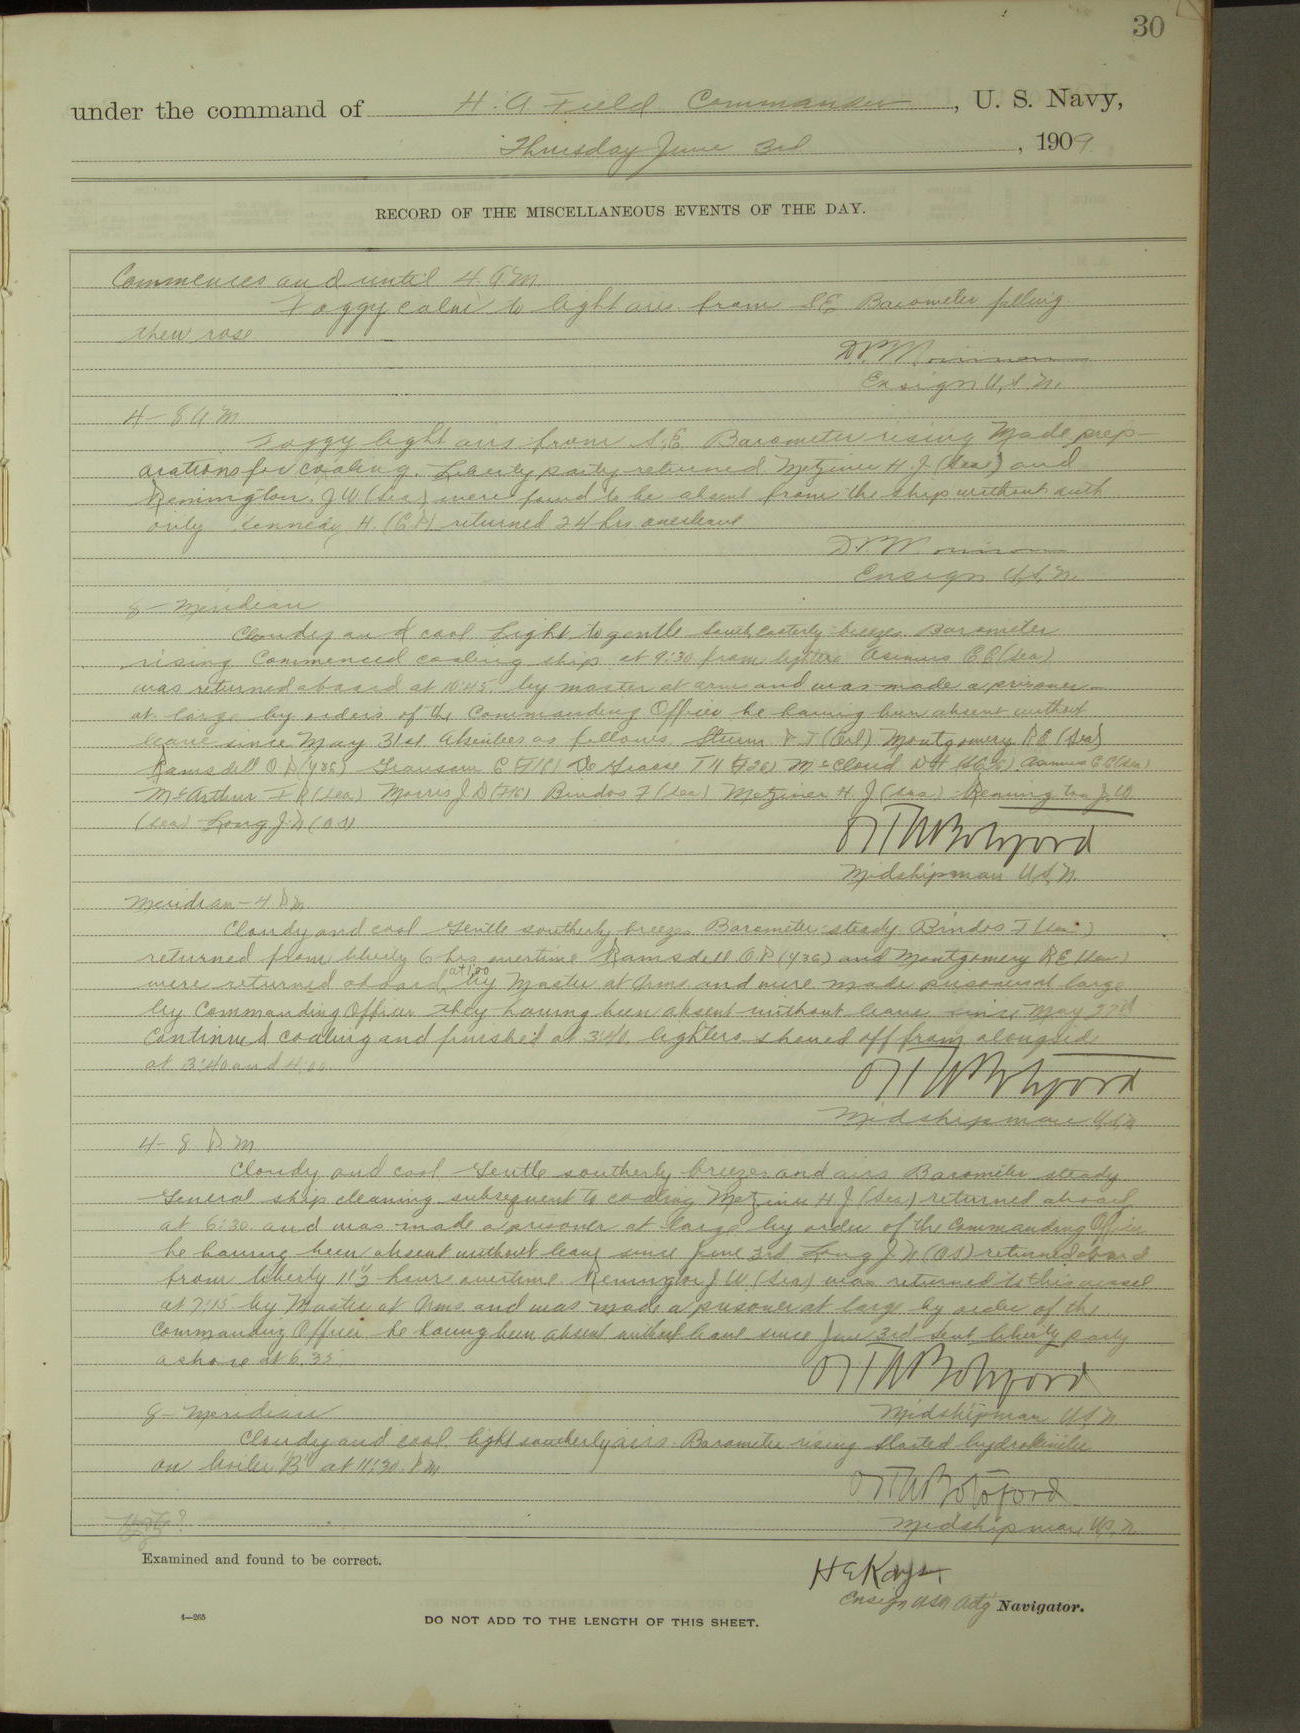 30
under the command of H. A. Field Commander, U. S. Navy,
Thursday June 3rd, 1909
RECORD OF THE MISCELLANEOUS EVENTS OF THE DAY.
Commences and until 4 A M
Foggy calm to light airs from SE Barometer falling
then rose
Ensign U.S.N.
4 - 8 A M
Foggy light airs from S.E. Barometer rising Made prep-
arations for coaling. Liberty party returned Metziner H. J. (Sea) and
Remington J W (Sea) were found to be absent from the ship without auth
ority Kennedy H. returned 24 hrs overleave
Ensign U.S.N.
8 - Meridian
Cloudy and cool Light to gentle south easterly breezes. Barometer
rising Commenced coaling ship at 9:30 from lighters Asimus E E (Sea)
was returned aboard at 10:45 by master at arms and was made a prisoner
at large by orders of the Commanding Officer he having been absent without
leave since May 31st Absentees as follows Montgomery R E (Sea)
Ramsdell O P (Y3c) De Grasse McCloud D H Asimus E E (Sea)
McArthur F R (Sea) Morris J D Bindos F (Sea) Metziner H. J (Sea) Remington J. W
(Sea) Long J. N (OS)
Midshipman U.S.N.
Meridian - 4 P M
Cloudy and cool Gentle southerly breezes Barometer steady Bindos F (Sea)
returned from liberty 6 hrs overtime Ramsdell O. P (Y3c) and Montgomery R E (Sea)
were returned aboard at 1:00 by Master at Arms and were made prisoners at large
by Commanding Officer they having been absent without leave since May 27th
Continued coaling and finished at 3:40, lighters shoved off from alongside
at 3:40 and 4:00
Midshipman U.S.N.
4 - 8 P M
Cloudy and cool Gentle southerly breezes and airs Barometer steady
General ship cleaning subsequent to coaling Metziner H J (Sea) returned aboard
at 6:30 and was made a prisoner at large by order of the Commanding Officer
he having been absent without leave since June 3rd Long J. N (OS) returned aboard
from liberty 11½ hours overtime Remington J W (Sea) was returned to this vessel
at 7:15 by Master at Arms and was made a prisoner at large by order of the
Commanding Officer he having been absent without leave since June 3rd Sent liberty party
ashore at 6.35
Midshipman U S N
8 - Meridian
Cloudy and cool light southerly airs Barometer rising Started hydrokineter
on boiler "B" at 11:30 P M
Midshipman U.S.N.
Examined and found to be correct.
Ensign USN Act'g Navigator.
4—265
DO NOT ADD TO THE LENGTH OF THIS SHEET.